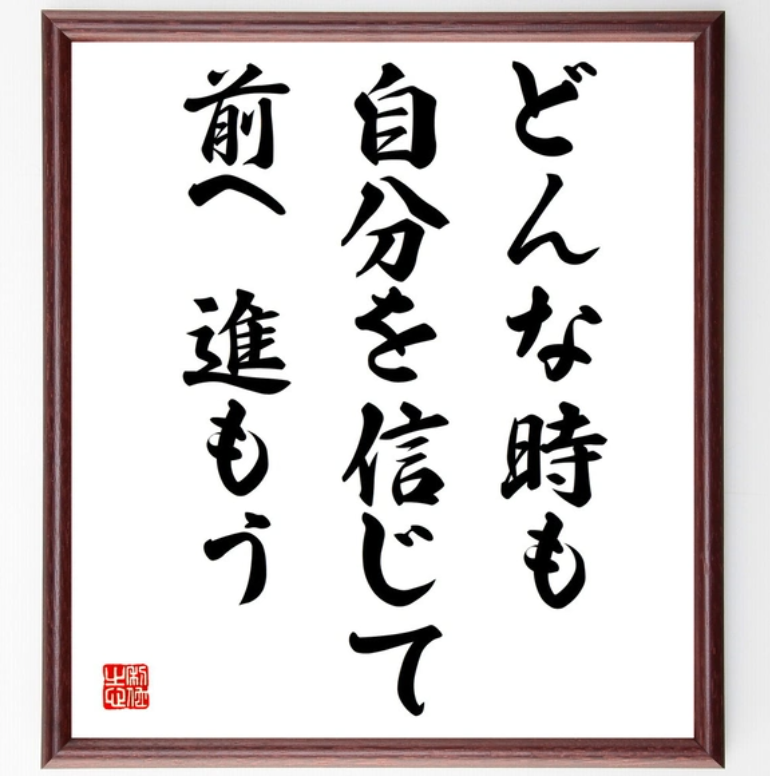 どんな時も
自分を信じて
前へ 進もう